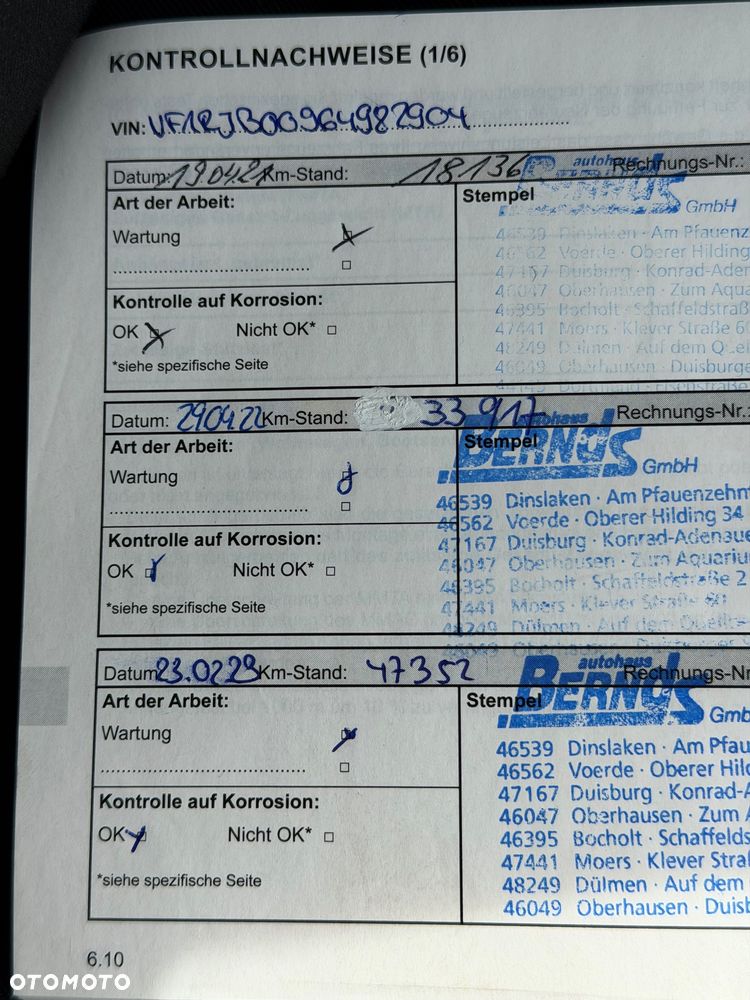 KONTROLLNACHWEISE (1/6)
VIN: VF1RJB00964982904
Datum: 19.04.21 Km-Stand: 18136 Rechnungs-Nr.:
Art der Arbeit: Stempel autohaus BERNDS GmbH
Wartung 46539 Dinslaken · Am Pfauenz
46562 Voerde · Oberer Hilding
47167 Duisburg · Konrad-Aden
Kontrolle auf Korrosion: 46047 Oberhausen · Zum Aqua
46395 Bocholt · Schaffeldstraß
OK Nicht OK* 47441 Moers · Klever Straße 6
48249 Dülmen · Auf dem
*siehe spezifische Seite 46049 Oberhausen · Duisburge
Datum: 290422 Km-Stand: 33917 Rechnungs-Nr.:
Art der Arbeit: Stempel autohaus BERNDS GmbH
Wartung 46539 Dinslaken · Am Pfauenzehnt
46562 Voerde · Oberer Hilding 34
Kontrolle auf Korrosion: 47167 Duisburg · Konrad-Adenaue
46047 Oberhausen · Zum Aquariu
OK Nicht OK* 46395 Bocholt · Schaffeldstraße 2
*siehe spezifische Seite 47441 Moers · Klever Straße
48249 Dülmen · Auf dem
46049 Oberhausen
Datum: 23.02.23 Km-Stand: 47352 Rechnungs-Nr
Art der Arbeit: Stempel autohaus BERNDS Gmb
Wartung 46539 Dinslaken · Am Pfau
46562 Voerde · Oberer Hild
47167 Duisburg · Konrad-A
Kontrolle auf Korrosion: 46047 Oberhausen · Zum A
OK Nicht OK* 46395 Bocholt · Schaffelds
47441 Moers · Klever Stra
*siehe spezifische Seite 48249 Dülmen · Auf dem
46049 Oberhausen · Duisb
6.10
OTOMOTO